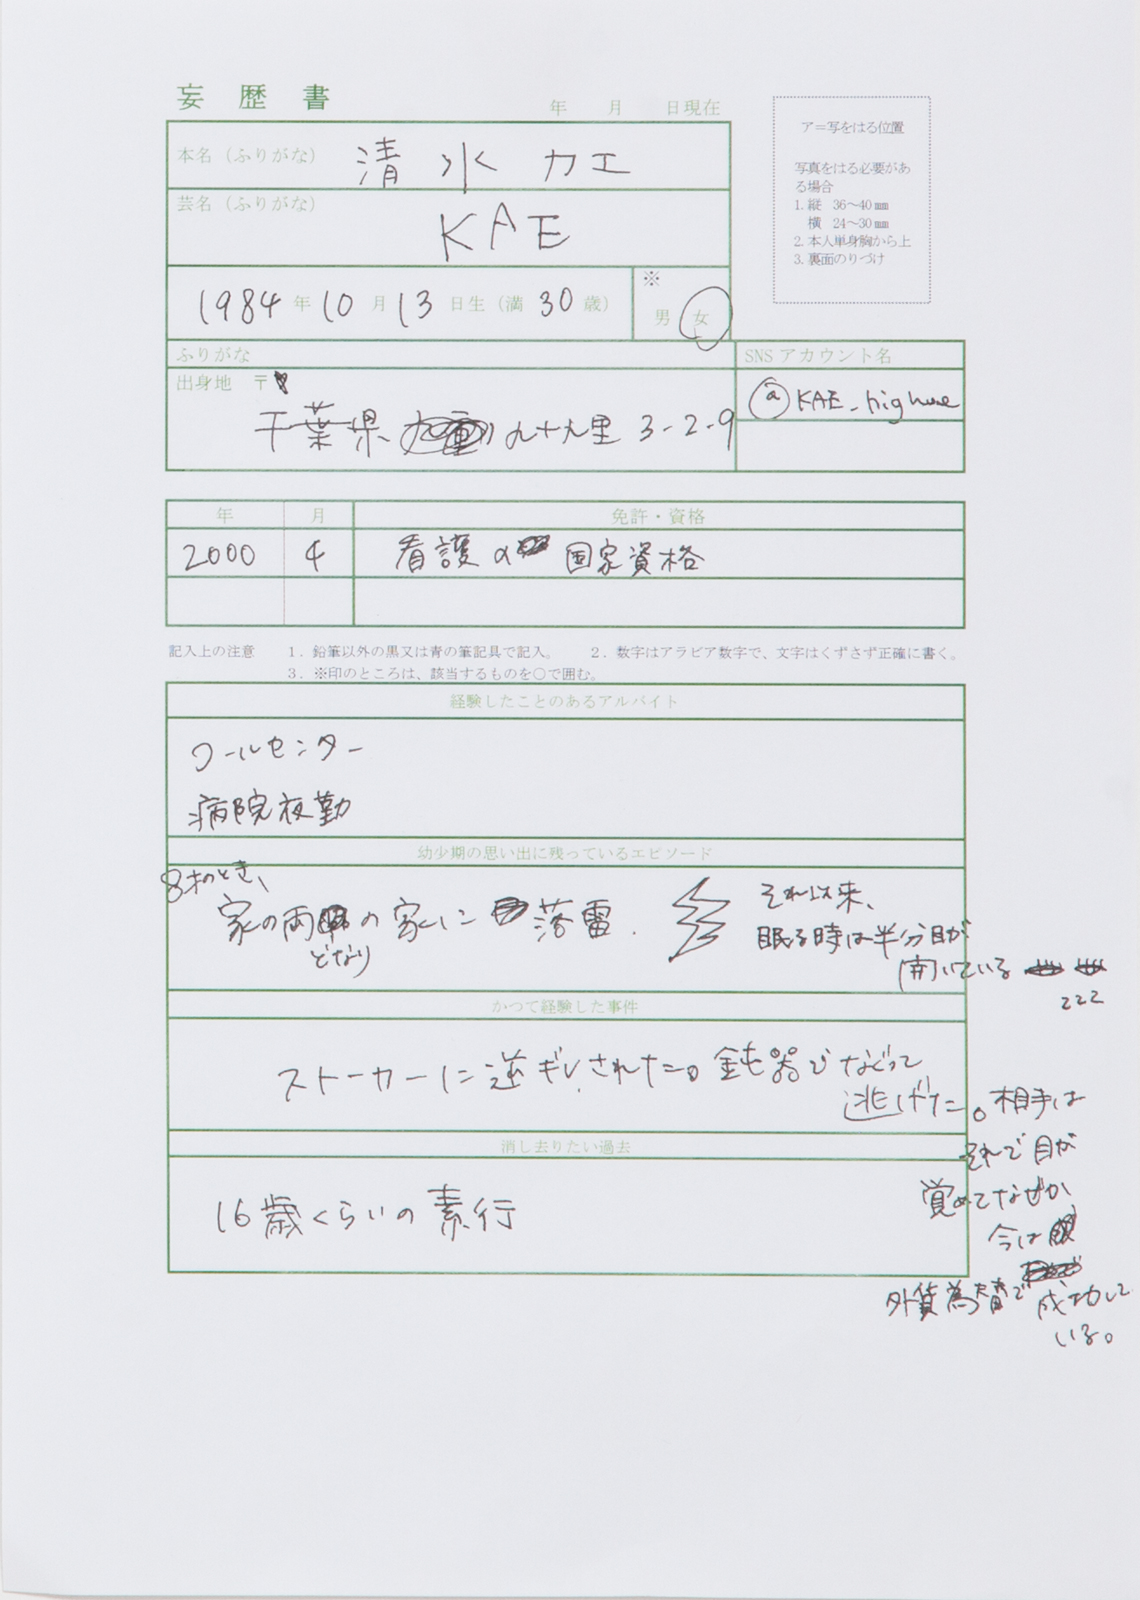 妄歴書
年 月 日現在
ア＝写をはる位置
写真をはる必要があ
る場合
1. 縦 36〜40㎜
横 24〜30㎜
2. 本人単身胸から上
3. 裏面のりづけ
本名（ふりがな） 清水カエ
芸名（ふりがな） KAE
1984年10月13日生（満30歳）
※
男 女
ふりがな
出身地 〒
千葉県 九十九里 3-2-9
SNS アカウント名
@KAE_
年 月 免許・資格
2000 4 看護の 国家資格
記入上の注意 1. 鉛筆以外の黒又は青の筆記具で記入。 2. 数字はアラビア数字で、文字はくずさず正確に書く。
3. ※印のところは、該当するものを○で囲む。
経験したことのあるアルバイト
コールセンター
病院夜勤
幼少期の思い出に残っているエピソード
8才のとき、
家の両どなりの家に 落雷.
それ以来、
眠る時は半分目が
開いている
zzz
かつて経験した事件
ストーカーに逆ギレされた。鈍器でなぐって
逃げた。相手は
それで目が
覚めてなぜか、
今は
外貨為替で成功して
いる。
消し去りたい過去
16歳くらいの素行